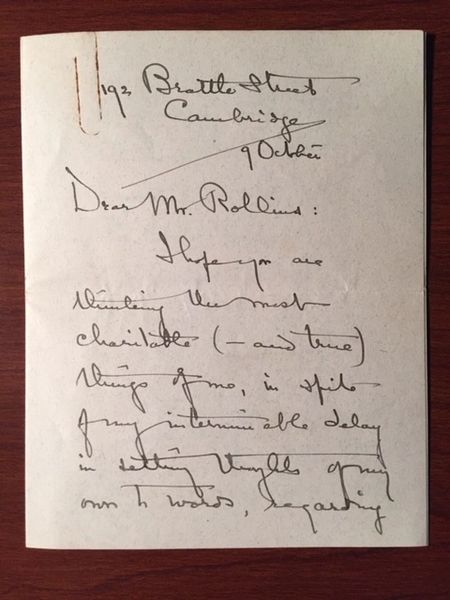 193 Brattle Street
Cambridge
9 October
Dear Mr. Rollins:
I hope you are
thinking the most
charitable (- and true)
things of me, in spite
of my interminable delay
in setting thoughts of my
own to words, regarding